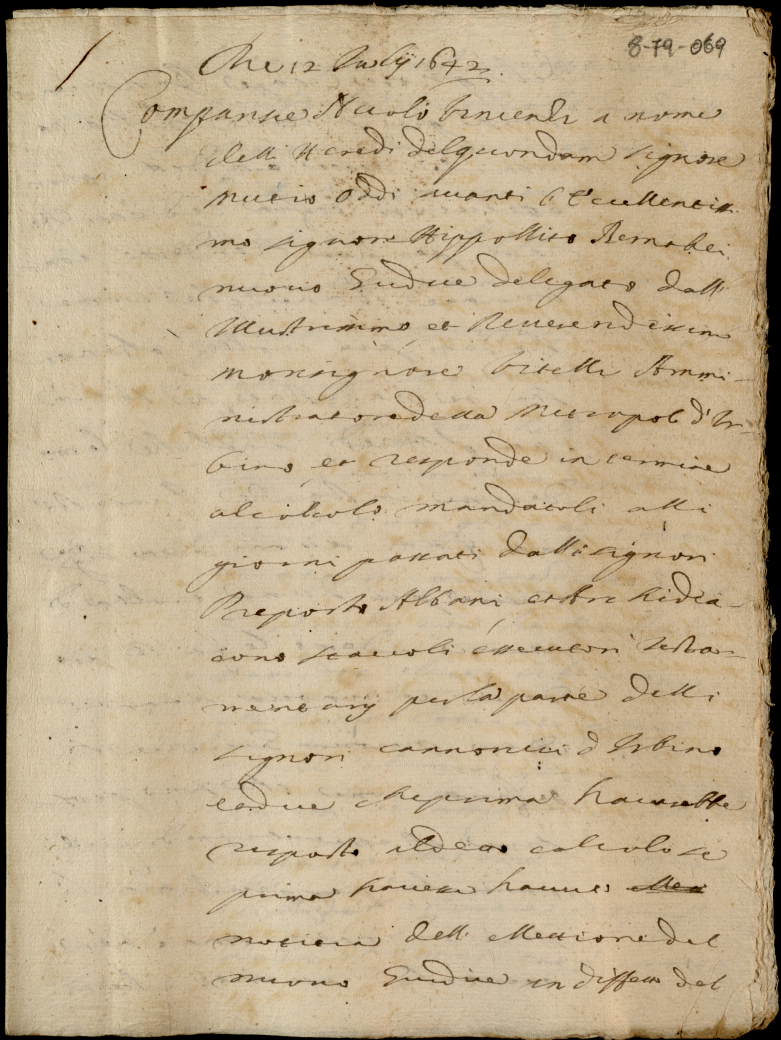 8-79-069
Die 12 July 1642
Comparue Nicolò Vincenti a nome
delli Heredi del quondam signore
Mutio Oddi avanti l'Eccellentiss
mo signore Hippollito Bernabei
nuovo Giudice delegato dall
Illustrissimo et Reverendissimo
monsignore Vitelli Ammi-
nistratore della Metropoli d'Ur-
bino, et responde in termine
al calcolo mandatoli alli
giorni passati dalli signori
Preposto Albani, et Archidia-
cono Staccoli essecutori testa-
mentarij per la parte delli
signori cannonici d'Urbino
e dice che prima haverebbe
risposto al detto calcolo se
prima havesse havuto
notitia dell'elettione del
nuovo Giudice in diffetto del